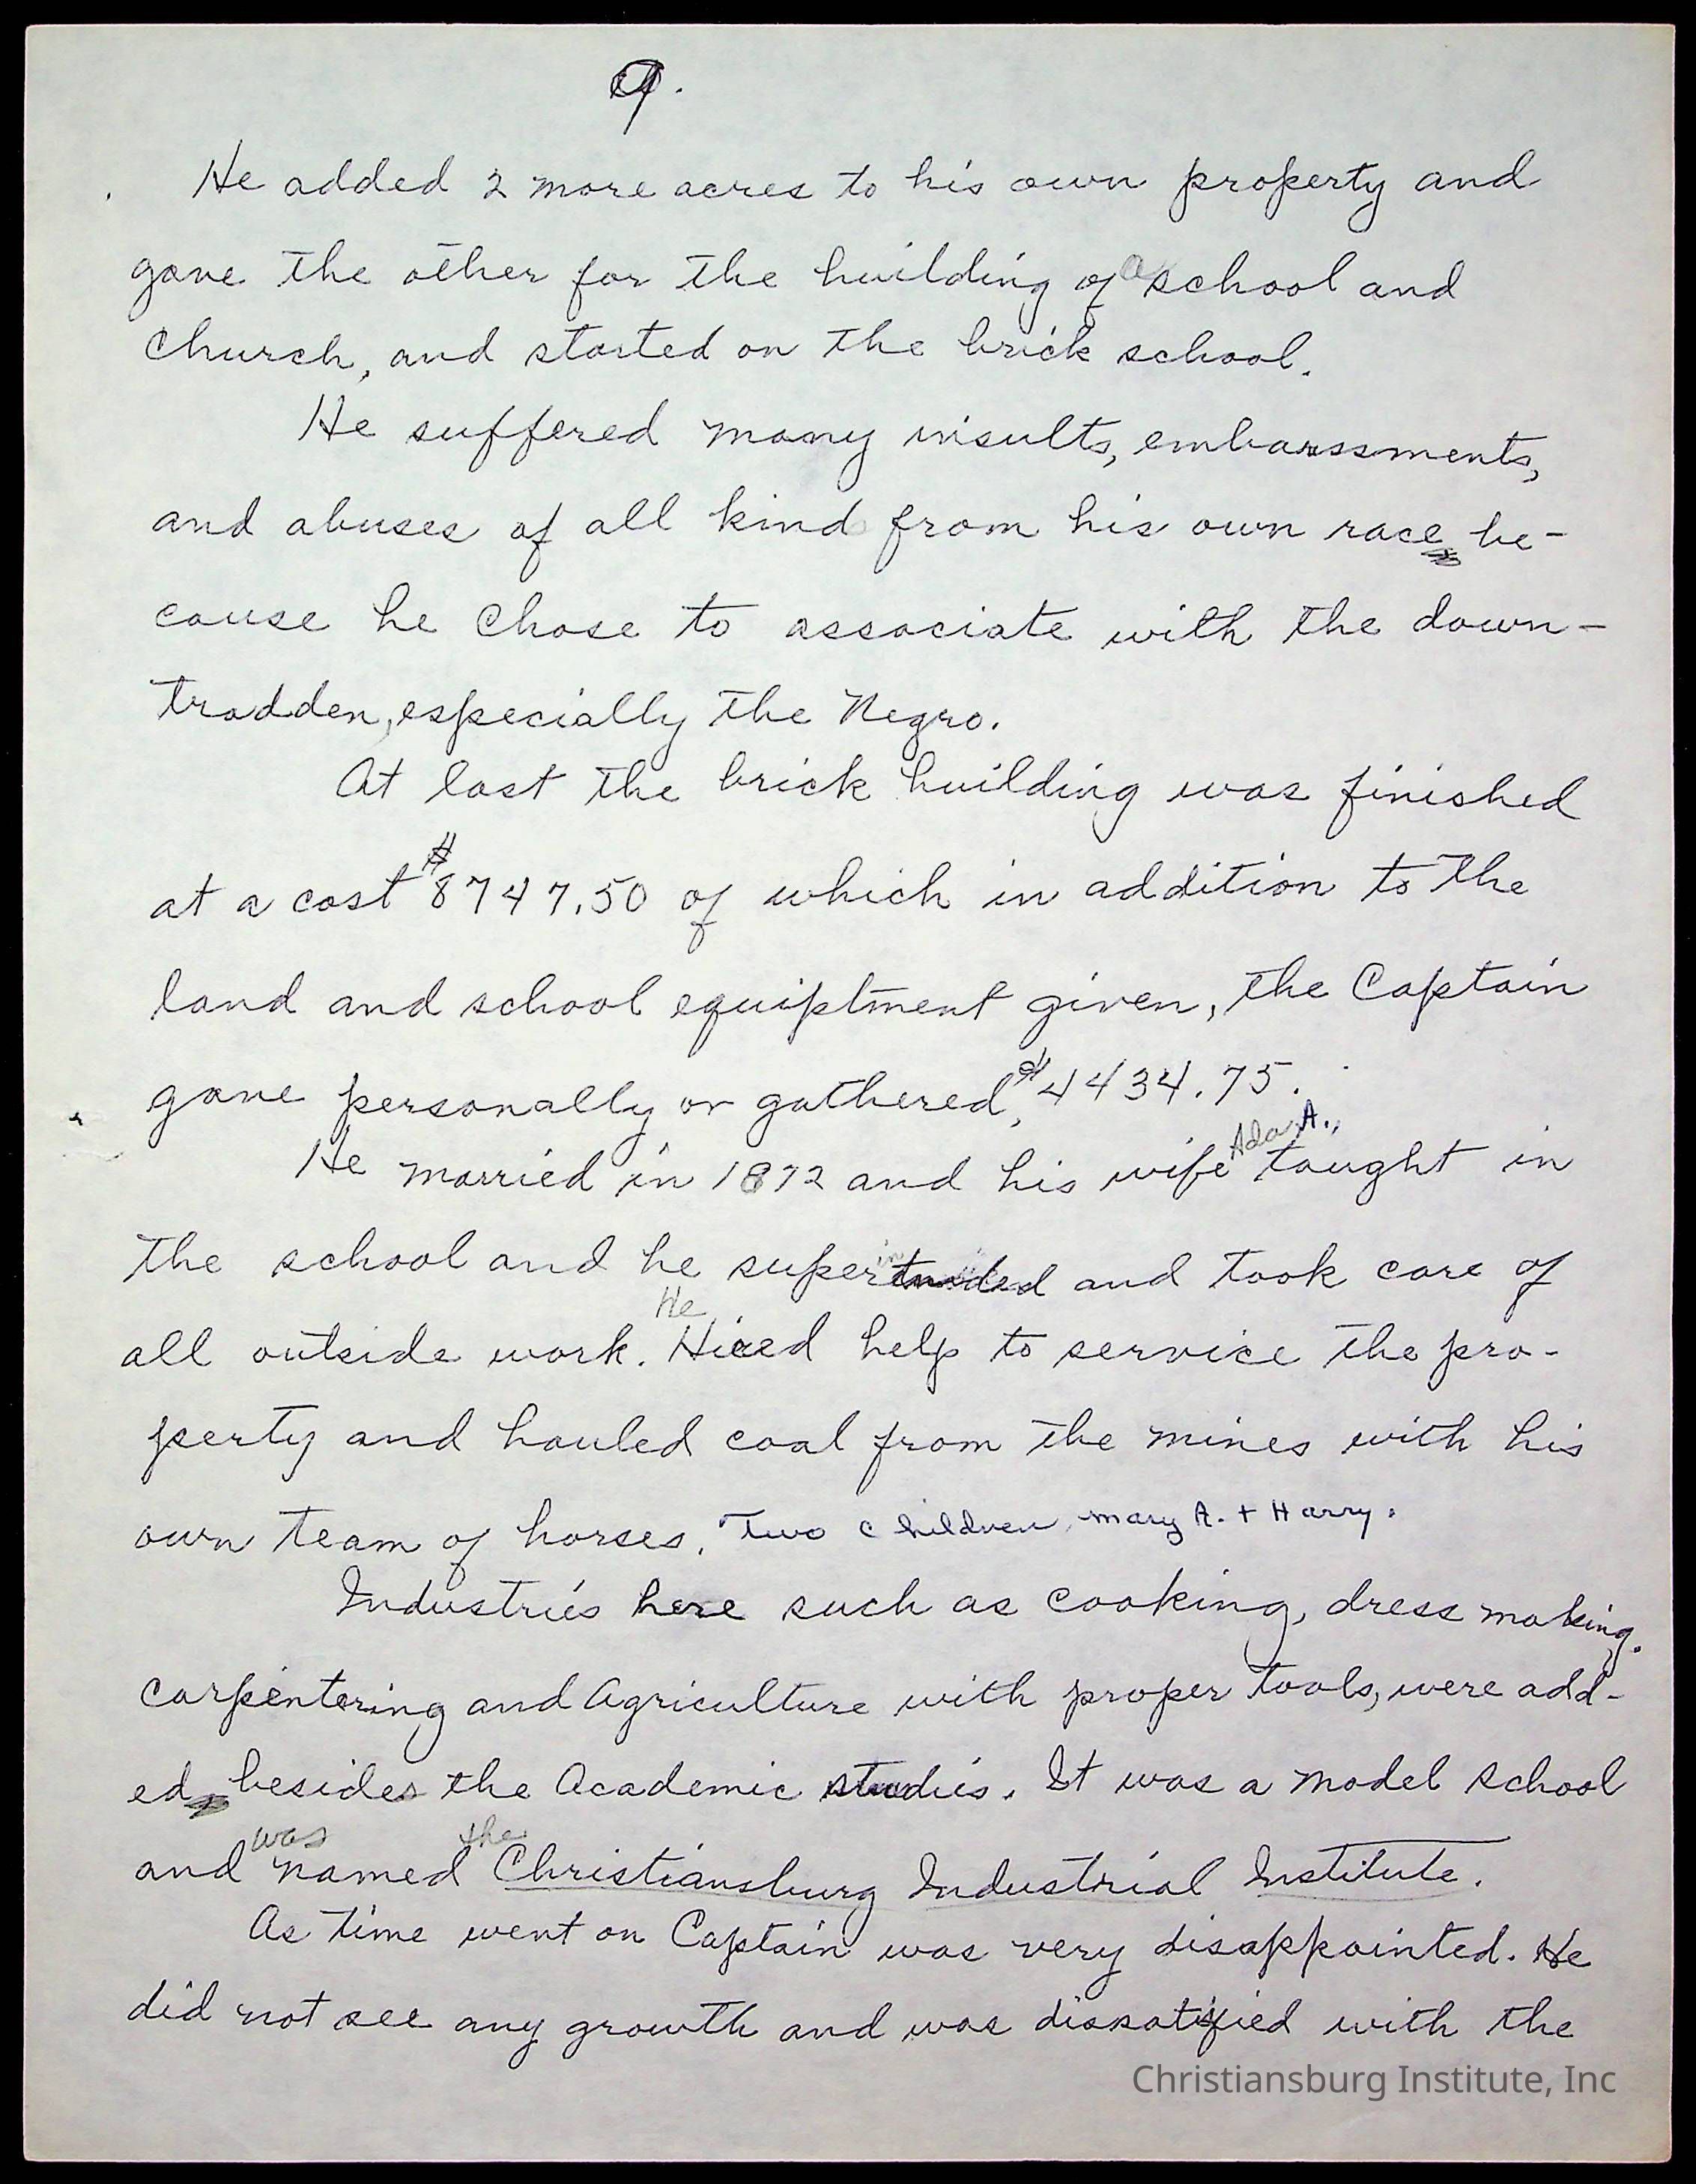 9.
He added 2 more acres to his own property and
gave the other for the building of a school and
Church, and started on the brick school.
He suffered many insults, embarssments,
and abuses of all kind from his own race be-
cause he chose to associate with the down-
trodden, especially the Negro.
At last the brick building was finished
at a cost $8747.50 of which in addition to the
land and school equiptment given, the Captain
gave personally or gathered, $4434.75.
He married in 1872 and his wife Ada A., taught in
the school and he superintended and took care of
all outside work. He Hired help to service the pro-
perty and hauled coal from the mines with his
own team of horses. Two children, Mary A. + Harry.
Industries here such as cooking, dress making.
carpentering and Agriculture with proper tools, were add-
ed besides the Academic studies. It was a model school
and was named the Christiansburg Industrial Institute.
As time went on Captain was very disappointed. He
did not see any growth and was dissatified with the
Christiansburg Institute, Inc